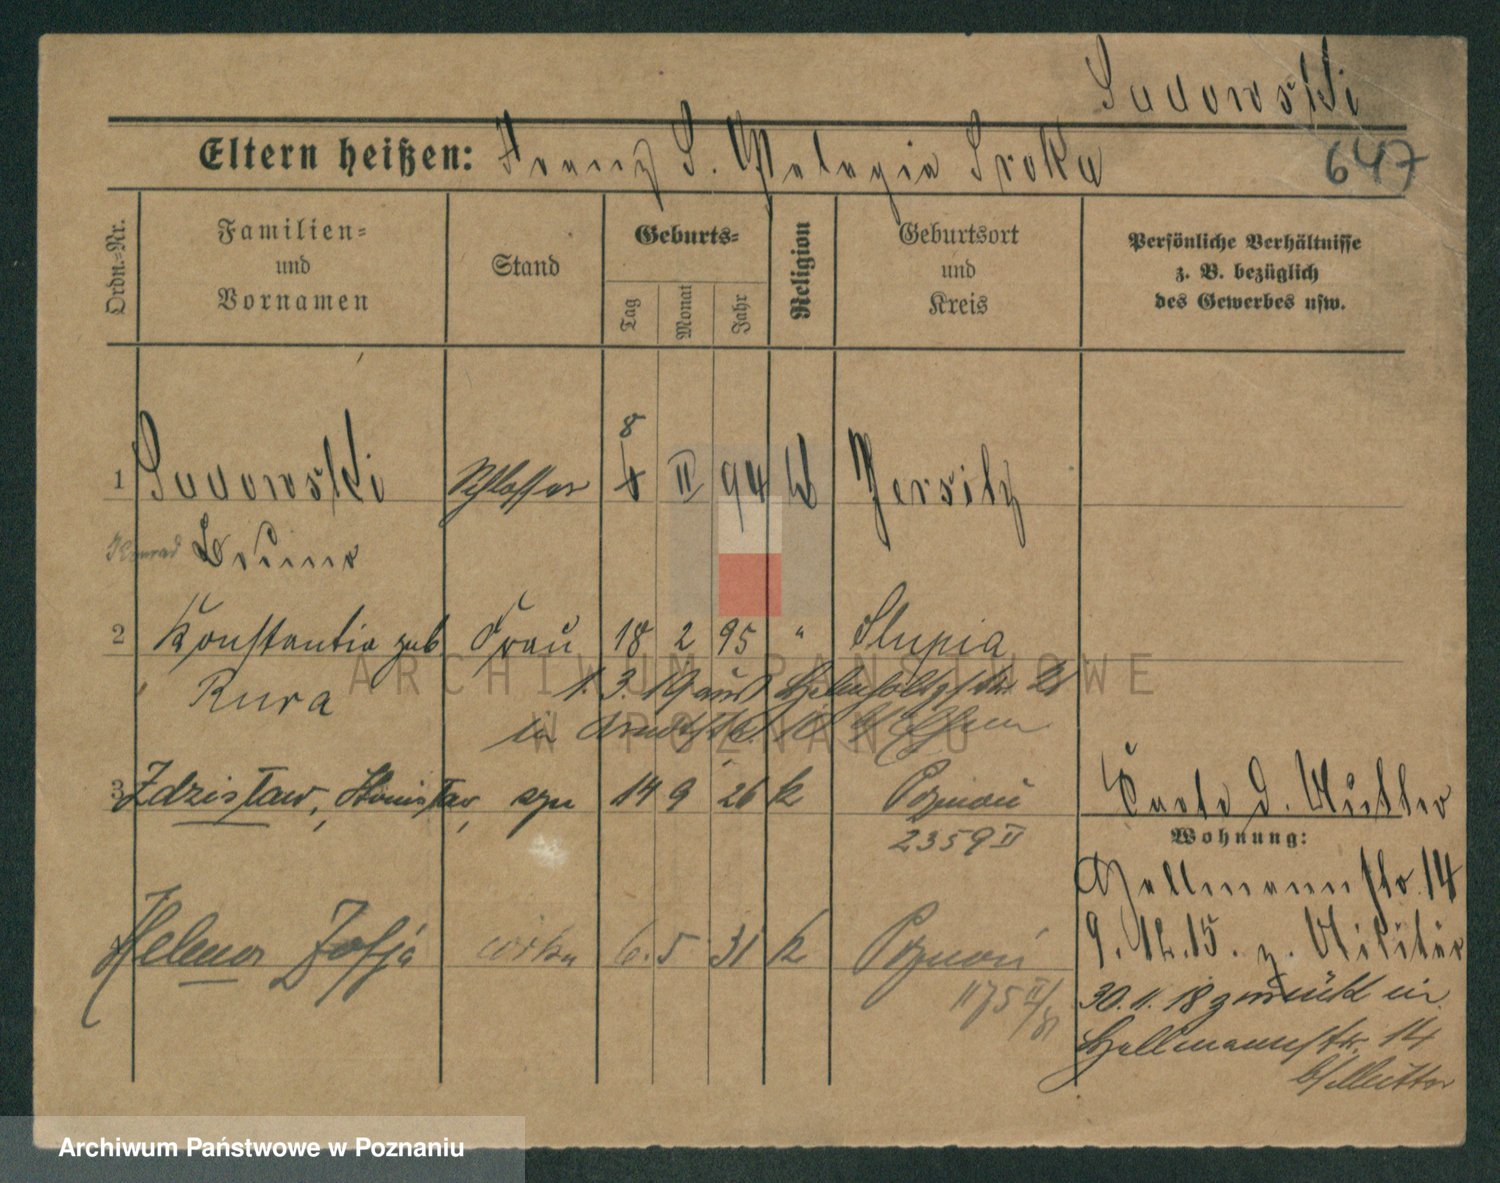 Sadowski
Eltern heißen: Franz S. Pelagia Sroka
647
Ordn.-Nr.
Familien-
und
Vornamen
Stand
Geburts-
Tag
Monat
Jahr
Religion
Geburtsort
und
Kreis
Persönliche Verhältnisse
z. B. bezüglich
des Gewerbes usw.
8
1 Sadowski Schlosser 6 II 94 k Jersitz
Konrad Bruno
2 Konstantia geb Frau 18 2 95 " Slupia
Rura 1. 3. 19 aus 21
in Arndtstr.
3 Zdzisław, Stanisław, syn 14 9 26 k Poznań
2359 II
Karte d. Mutter
Wohnung:
Hellmannstr. 14
9. 12. 15. z. Militär
Helena Zofja córka 6. 5 31 k Poznań
1175 II/31
30. 11. 18 zurück in
Hellmannstr. 14
b/ Mutter
ARCHIWUM PAŃSTWOWE
W POZNANIU
Archiwum Państwowe w Poznaniu